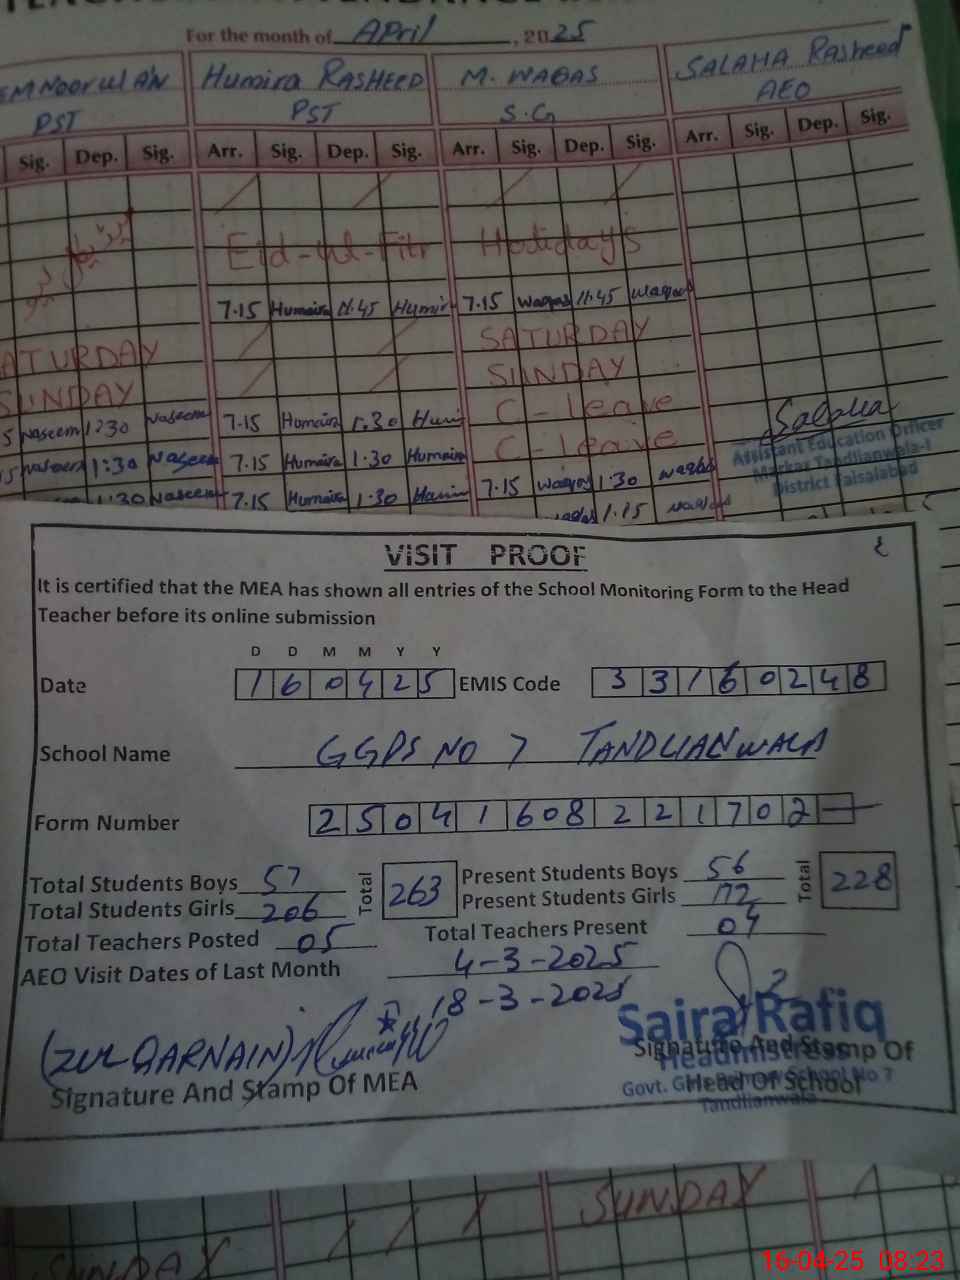 For the month of April, 2025
Humira RASHEED M. WAQAS SALAHA Rasheed
PST PST S.G AEO
Sig. Dep. Sig. Arr. Sig. Dep. Sig. Arr. Sig. Dep. Sig. Arr. Sig. Dep. Sig.
Eid-ul-Fitr Holidays
7.15 Humaira 11.45 7.15 Waqas 11.45 waqas
SATURDAY
ATURDAY SUNDAY
SUNDAY C-leave
Naseem 1:30 Naseem 7.15 Humaira 1.30 C-leave
1:30 Naseem 7.15 Humaira 1.30 Humaira 7.15 Waqas 1.30
1:30 Naseem 7.15 Humaira 1.30 1.15
Salaha
Assistant Education Officer
Markaz Tandlianwala-I
District Faisalabad
VISIT PROOF
It is certified that the MEA has shown all entries of the School Monitoring Form to the Head
Teacher before its online submission
D D M M Y Y
Date 160425 EMIS Code 33160248
School Name GGPS NO 7 TANDLIANWALA
Form Number 25041608221702
Total Students Boys 57 Total 263 Present Students Boys 56 Total 228
Total Students Girls 206 Present Students Girls 172
Total Teachers Posted 05 Total Teachers Present 04
AEO Visit Dates of Last Month 4-3-2025
18-3-2025
(ZULQARNAIN)
Signature And Stamp Of MEA
Saira Rafiq
Signature And Stamp Of
Headmistress
Head Of School
Govt. School No 7
Tandlianwala
SUNDAY
SUNDAY
16-04-25 08:23